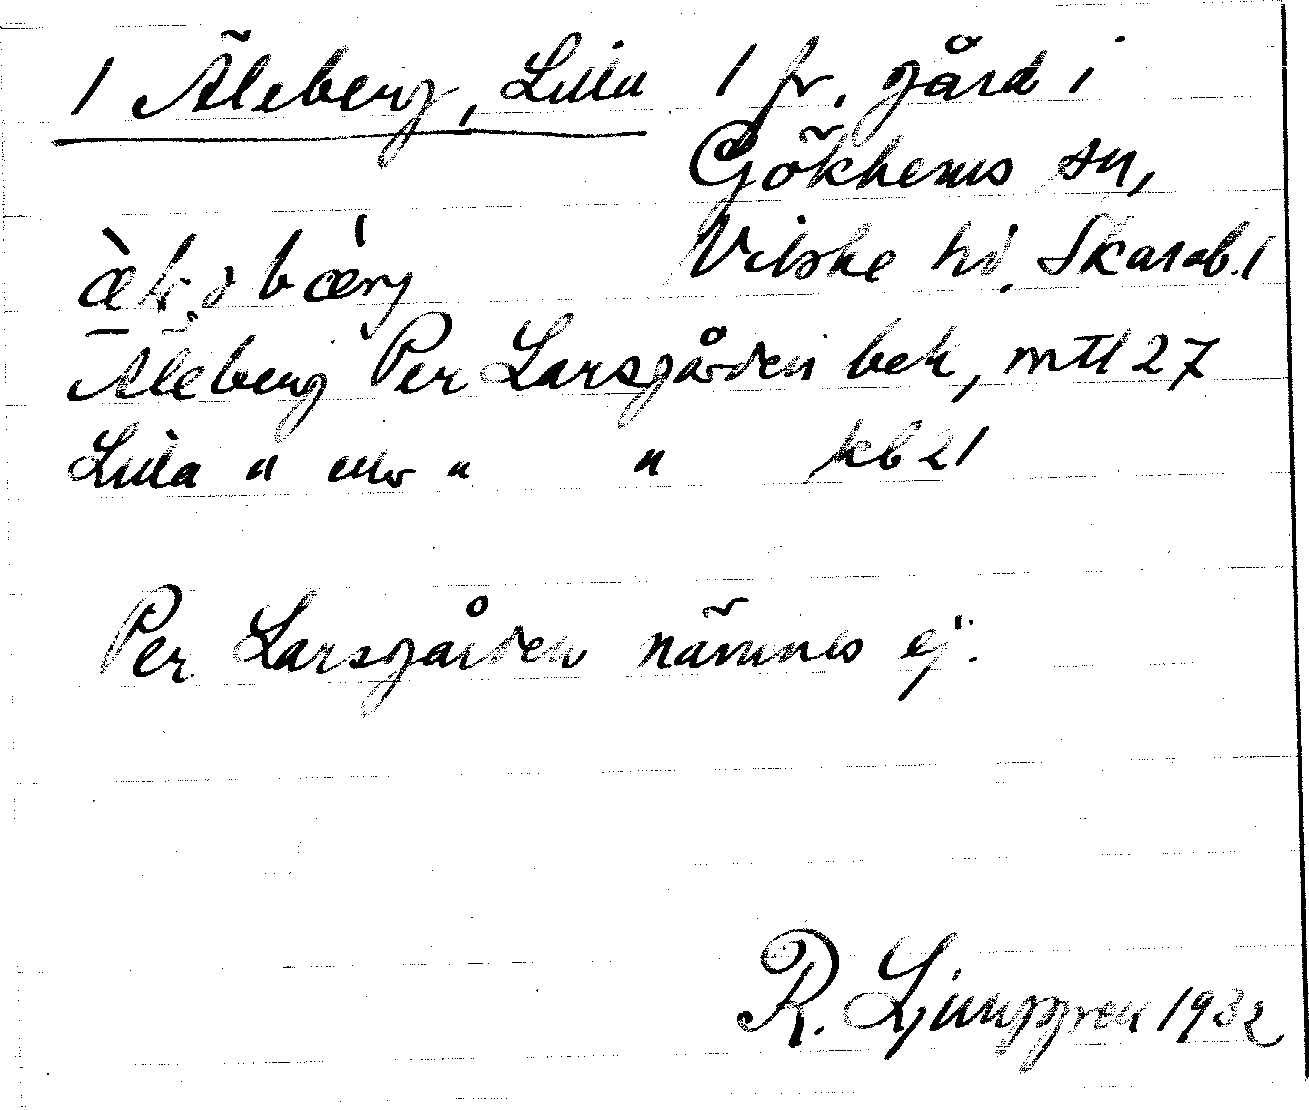 1 Äleberg, Lilla 1 fr. gård i
Gökhems sn,
Vilske hd. Skarab. l
Äleberg Per Larsgården bek, mtl 27
Lilla " " " kb 21
Per Larsgården nämnes ej.
R. Ljunggren 1932